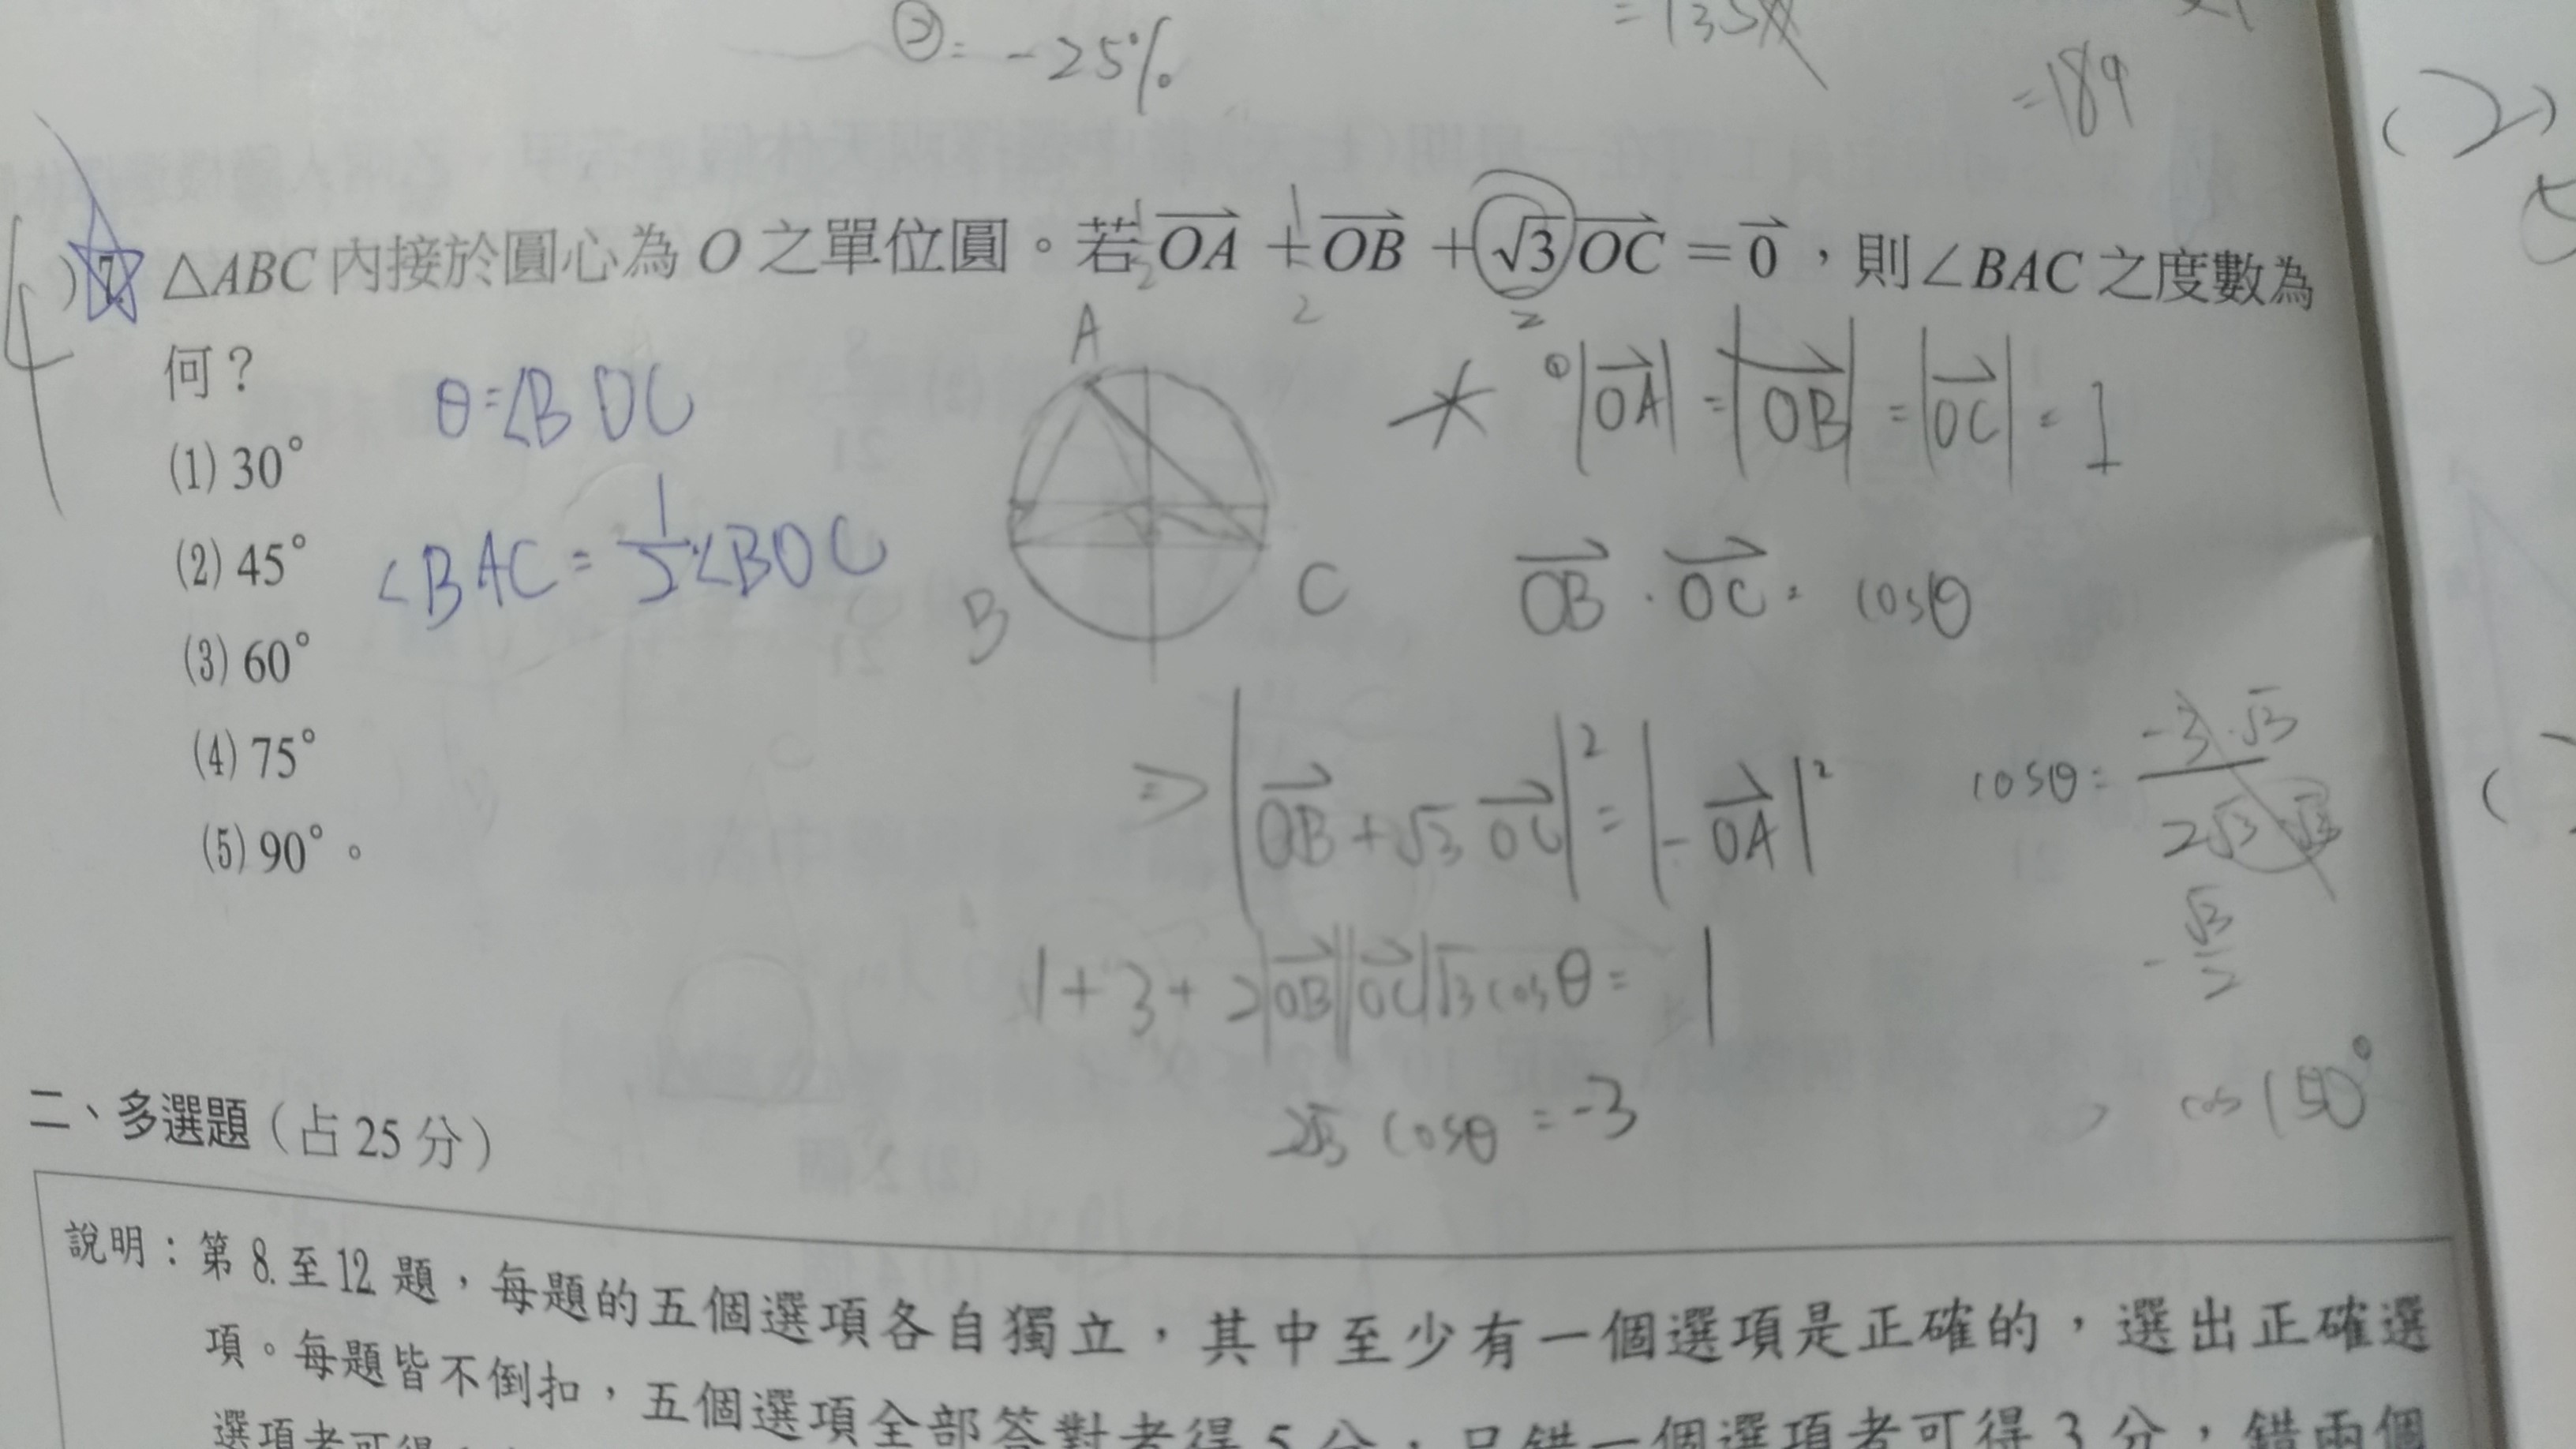 ② = -25%
= 135
= 189
(2)
4
) 7. △ABC 內接於圓心為 O 之單位圓。若 OA + OB + √3 OC = 0，則∠BAC 之度數為
何？
(1) 30°
(2) 45°
(3) 60°
(4) 75°
(5) 90°。
θ=∠BOC
∠BAC = 1/2 ∠BOC
A
B
C
|OA| = |OB| = |OC| = 1
OB · OC = cosθ
⇒ |OB + √3 OC|² = |-OA|²
1 + 3 + 2|OB||OC|√3 cosθ = 1
2√3 cosθ = -3
cosθ = -3·√3 / 2√3·√3
-√3/2
cos150°
二、多選題（占 25 分）
說明：第 8. 至 12. 題，每題的五個選項各自獨立，其中至少有一個選項是正確的，選出正確選
項。每題皆不倒扣，五個選項全部答對者得 5 分，只錯一個選項者可得 3 分，錯兩個
選項者可得